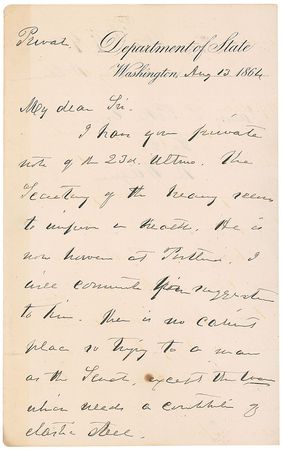 Private
Department of State
Washington, Aug 13. 1864.
My dear Sir.
I have your private
note of the 23d. Ultimo. The
Secretary of the Treasury seems
to improve in health. He is
now however at
will communicate your suggestion
to him. There is no cabinet
place so trying to a man
as the Senate, except the
which needs a constitution of
elastic steel.